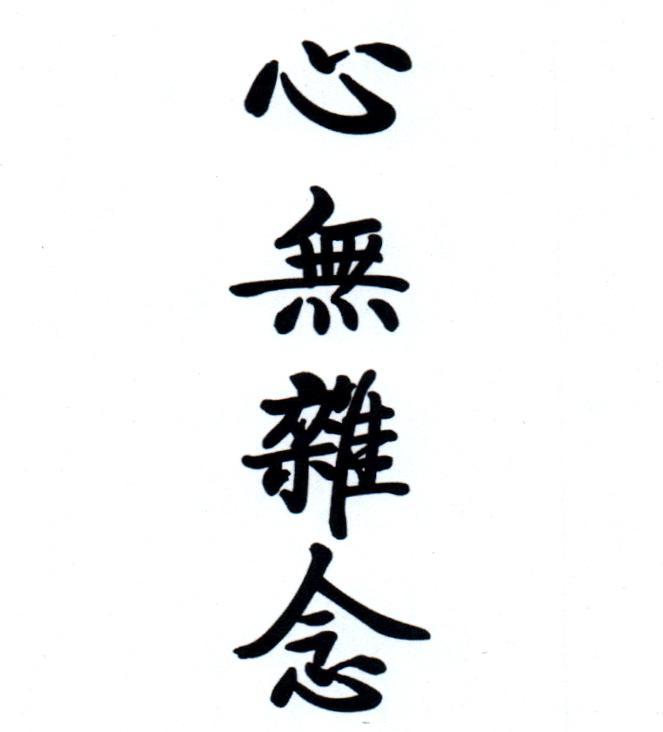 心無雜念